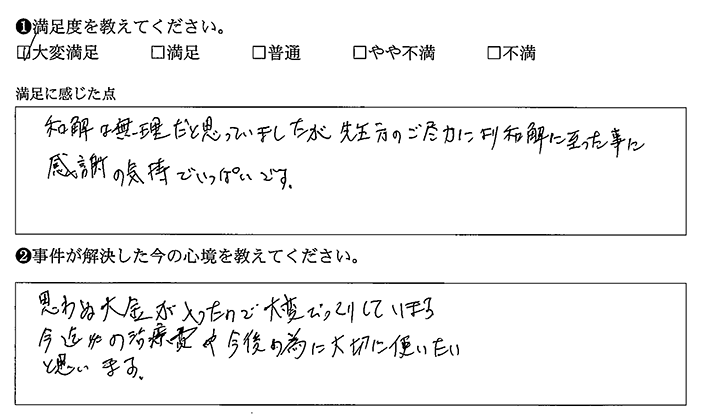 ❶満足度を教えてください。
☑大変満足 □満足 □普通 □やや不満 □不満
満足に感じた点
和解は無理だと思っていましたが先生方のご尽力により和解に至った事に
感謝の気持でいっぱいです。
❷事件が解決した今の心境を教えてください。
思わぬ大金が入ったので大変びっくりしています
今迄の治療費や今後の為に大切に使いたい
と思います。